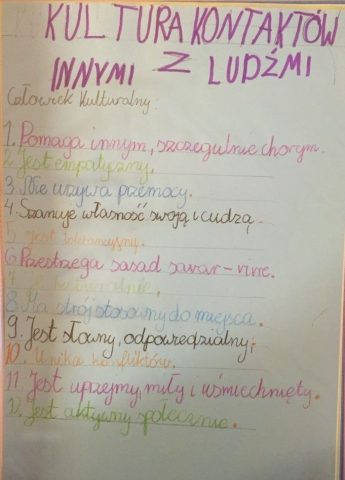 KULTURA KONTAKTÓW
INNYMI Z LUDŹMI
Człowiek Kulturalny:
1. Pomaga innym, szczegulnie chorym.
2. Jest empatyczny.
3. Nie używa przemocy.
4. Szanuje własność swoją i cudzą.
5. Jest tolerancyjny.
6. Przestrzega sasad savar-vivre.
7. kulturalnie.
8. Ma strój stosowny do miejsca.
9. Jest słowny, odpowiedzialny,
10. Unika konfliktów.
11. Jest uprzejmy, miły i uśmiechnięty.
12. Jest aktywny społecznie.